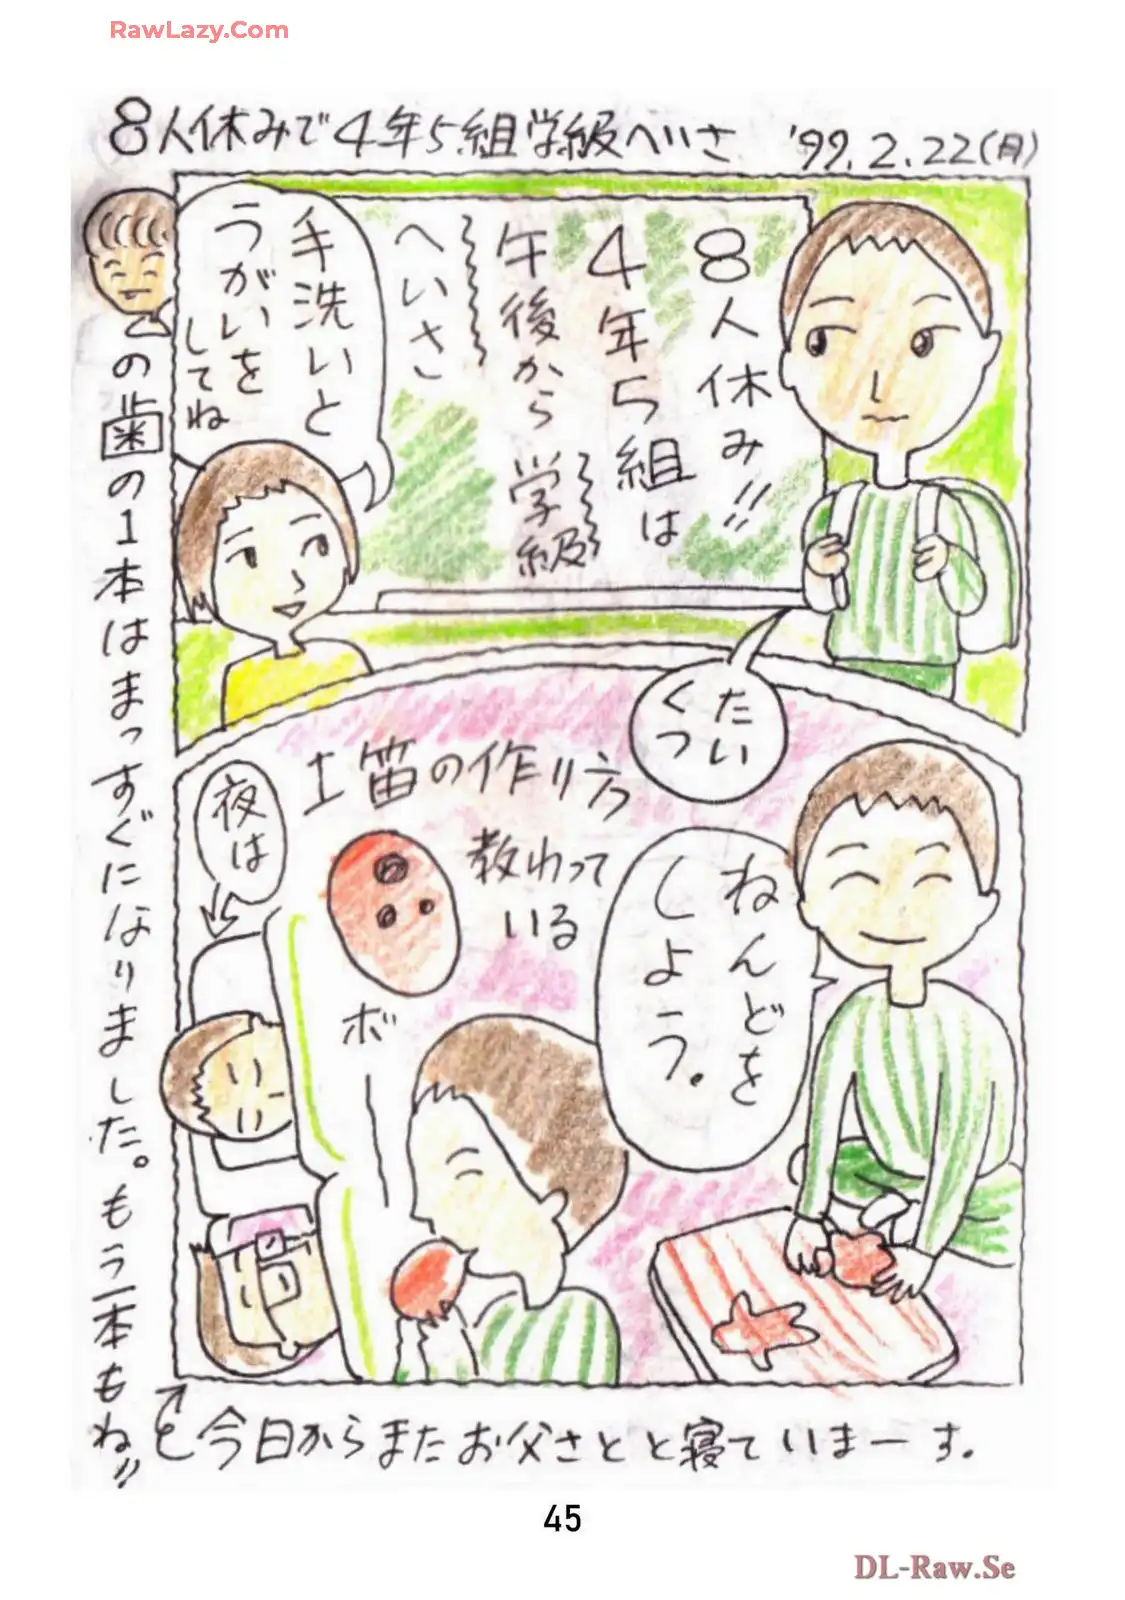 RawLazy.Com
8人休みで4年5組学級へいさ '99.2.22(月)
8人休み!!
4年5組は
午後から学級
へいさ
手洗いと
うがいを
してね
たい
くつ
土笛の作り方
教わって
いる
ねんどを
しよう。
ボー
夜は
の歯の1本はまっすぐになりました。もう一本もね!!
今日からまたお父さとと寝ていまーす。
45
DL-Raw.Se